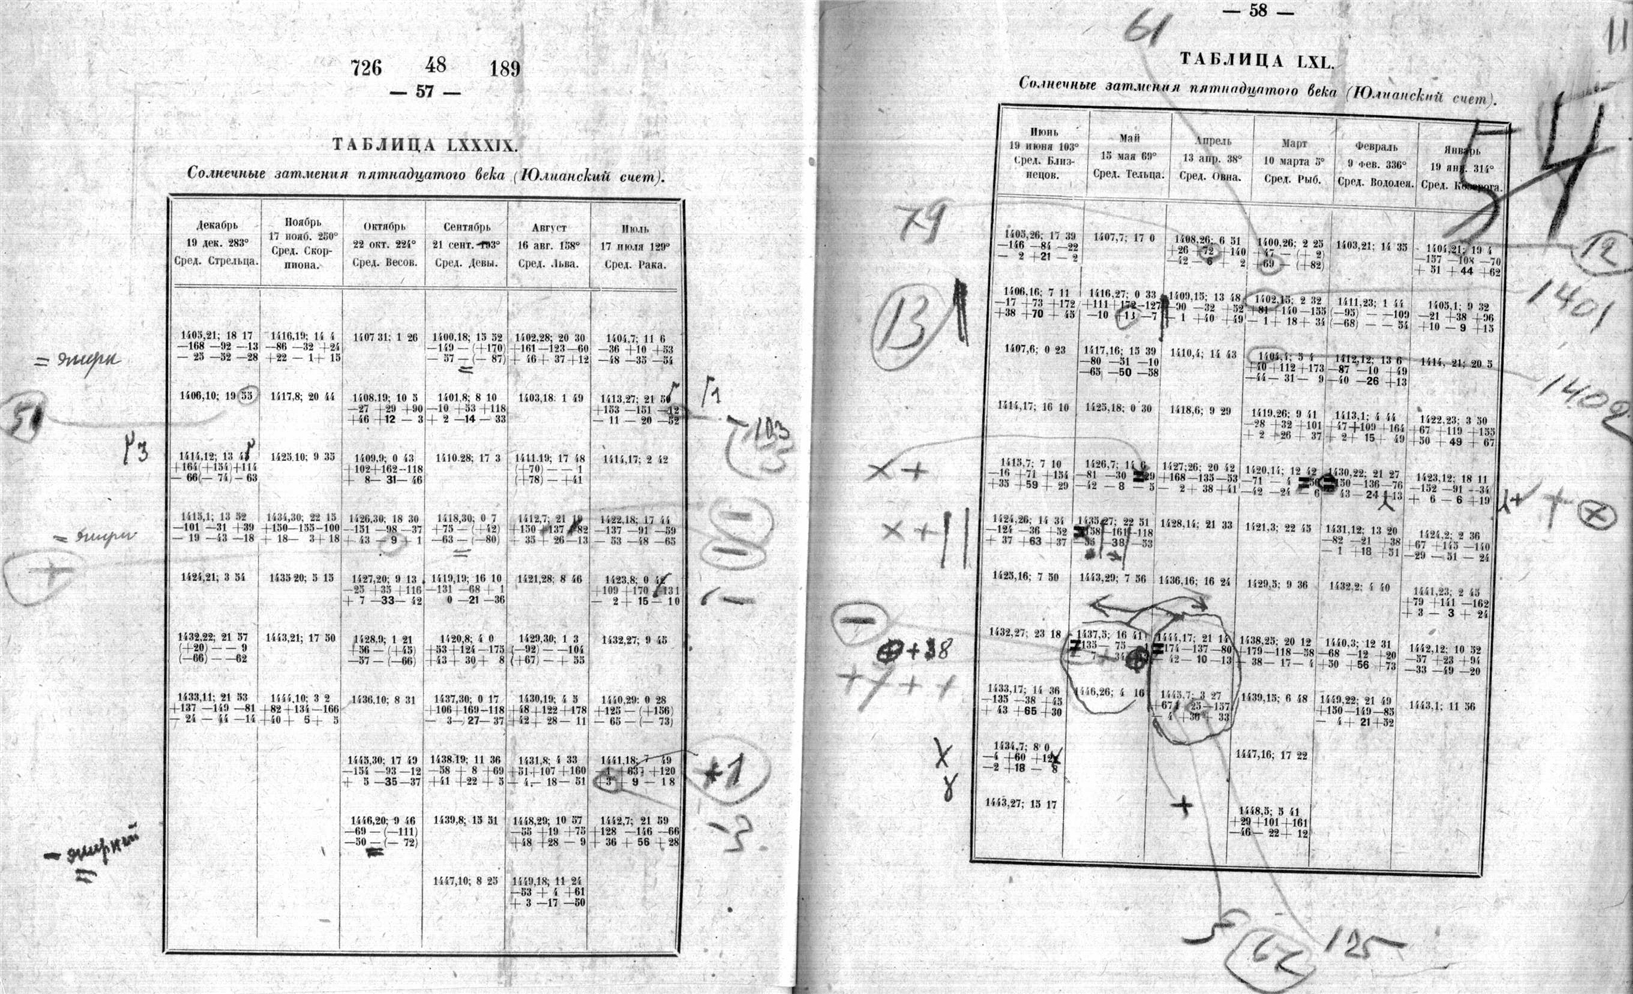 726 48 189
— 57 —
ТАБЛИЦА LXXXIX.
Солнечные затмения пятнадцатого века (Юлианский счет).
Декабрь
19 дек. 283°
Сред. Стрельца.
1405,21; 18 17
—168 —92 —13
— 25 —52 —28
1406,10; 19 55
1414,12; 13
+164(+154)+114
— 66(— 74)— 63
1415,1; 13 52
—101 —31 +39
— 19 —43 —18
1424,21; 3 54
1432,22; 21 57
(+20) — — 9
(—66) — —62
1433,11; 21 53
+137 —149 —81
— 24 — 44 —14
Ноябрь
17 нояб. 250°
Сред. Скор-
пиона.
1416,19; 14 4
—86 —32 +24
+22 — 1+ 15
1417,8; 20 44
1425,10; 9 35
1434,30; 22 15
+150—155—100
+ 18— 3+18
1435 20; 5 15
1443,21; 17 50
1444,10; 3 2
+82 +134—166
+40 + 6 + 5
Октябрь
22 окт. 224°
Сред. Весов.
1407 31; 1 26
1408,19; 10 5
—27 +29 +90
+46 +12 — 3
1409,9; 0 43
+102+162—118
+ 8— 31— 46
1426,30; 18 30
—151 —98 —37
+ 43 — 9 + 1
1427,20; 9 13
—25 +35 +116
+ 7 —33— 42
1428,9; 1 21
+36 — (+45)
—57 — (—66)
1436,10; 8 31
1445,30; 17 49
—154 —93 —12
+ 5 —35 —37
1446,20; 9 46
—69 — (—111)
—50 — (— 72)
Сентябрь
21 сент.
Сред. Девы.
1400,18; 15 52
—149 — (+170)
— 57 — (— 87)
1401,8; 8 10
—10 +53 +118
+ 2 —14 — 33
1410,28; 17 3
1418,30; 0 7
+75 — (—42)
—63 — (—80)
1419,19; 16 10
—131 —68 + 1
0 —21 —36
1420,8; 4 0
+53 +124 —175
+43 + 30 + 8
1437,30; 0 17
+106 +169—118
— 3— 27— 37
1438,19; 11 36
—58 + 8 +69
+41 +22 + 5
1439,8; 15 51
1447,10; 8 25
Август
16 авг. 158°
Сред. Льва.
1402,28; 20 30
+161 —123 —60
+ 46 + 37 +12
1403,18; 1 49
1411,19; 17 48
(+70) — — 1
(+78) — +41
1412,7; 21
+150 —137 —82
+ 35 + 26 —13
1421,28; 8 46
1429,30; 1 3
(—92) — —104
(+67) — + 55
1430,19; 4 5
+48 +122 +178
+42 + 28 — 11
1431,8; 4 33
+51+107 +160
— 4— 18— 51
1448,29; 10 57
—55 +19 +75
+48 +28 — 9
1449,18; 11 24
—53 + 4 +61
+ 3 —17 —50
Июль
17 июля 129°
Сред. Рака.
1404,7; 11 6
—36 +10 +53
—48 —35 —54
1413,27; 21
+153 —151
— 11 — 20 —52
1414,17; 2 42
1422,18; 17 44
—137 —91 —59
— 53 —48 —65
1423,8; 0
+109 +170
— 2 + 15 — 10
1432,27; 9 45
1440,29; 0 28
+125 — (+156)
— 65 — (— 73)
1441,18; 7 49
+120
— 9 — 18
1442,7; 21 59
+128 —146 —66
+ 36 + 56 +28
51
103
+1
—3
— 58 —
61
11
ТАБЛИЦА LXL.
Солнечные затмения пятнадцатого века (Юлианский счет).
54
Июнь
19 июня 103°
Сред. Близ-
нецов.
1405,26; 17 39
—146 —84 —22
— 2 +21 — 2
1406,16; 7 11
—17 +73 +172
+38 +70 + 45
1407,6; 0 23
1414,17; 16 10
1415,7; 7 10
—16 +71 +154
+35 +59 + 29
1424,26; 14 34
—124 —36 +52
+ 37 +63 +37
1425,16; 7 50
1432,27; 23 18
1433,17; 14 36
—135 —38 +45
+ 43 +65 +30
1434,7; 8 0
—4 +60
—2 +18 — 8
1443,27; 15 17
Май
15 мая 69°
Сред. Тельца.
1407,7; 17 0
1416,27; 0 33
+111 +172—127
—10 +11 —7
1417,16; 15 39
—80 —51 —10
—65 —50 —58
1425,18; 0 30
1426,7; 14 6
—81 —30
—42 — 8 — 5
1435,27; 22 51
1443,29; 7 56
1437,5; 16 41
1446,26; 4 16
Апрель
13 апр. 38°
Сред. Овна.
1408,26; 6 51
+26 +72 +140
—42 — 6 + 2
1409,15; 13 48
—90 —32 +52
— 1 +40 +49
1410,4; 14 43
1418,6; 9 29
1427,26; 20 42
+168 —135 —53
— 2 + 38 +41
1428,14; 21 33
1436,16; 16 24
1444,17; 21 14
+174 —137 —80
— 42 — 10 —13
1445,7; 3 27
Март
10 марта 5°
Сред. Рыб.
1400,26; 2 25
+47 — (+ 2)
—69 — (+82)
1402,15; 2 32
+81 +140 —155
— 1 + 18 + 34
1404,4; 5 4
+40 +112 +173
—44 — 31 — 9
1419,26; 9 41
—28 +32 +101
+ 2 +26 + 37
1420,14; 12 42
1421,3; 22 45
1429,5; 9 36
1438,25; 20 12
—179 —118 —58
— 38 — 17 — 4
1439,15; 6 48
1447,16; 17 22
1448,5; 5 41
+29 +101 +161
—46 — 22 + 12
Февраль
9 фев. 336°
Сред. Водолея.
1403,21; 14 35
1411,23; 1 44
(—95) — —109
(—68) — — 54
1412,12; 13 6
—87 —10 +49
—40 —26 +13
1413,1; 4 44
+47 +109 +164
+ 2+ 15 49
1430,22; 21 27
1431,12; 13 20
—82 —21 +38
— 1 +18 +51
1432,2; 4 40
1440,3; 12 31
—68 —12 +20
+50 +56 +73
1449,22; 21 49
+150 —149 —85
— 4+ 21 +52
Январь
19 янв. 314°
Сред. Козерога.
1404,21; 19 4
—157 —108 —70
+ 51 + 44 +62
1405,1; 9 32
—21 +38 +96
+10 — 9 +15
1414, 21; 20 5
1422,23; 3 50
+67 +119 +155
+50 + 49 + 67
1423,12; 18 11
—152 —91 —34
+ 6 — 6 +19
1424,2; 2 36
+67 +145 —140
—29 —51 — 24
1441,23; 2 45
+79 +141 —162
+ 3 — 3 + 24
1442,12; 10 52
—57 +23 +94
—33 —49 —20
1443,1; 11 56
79
13
12
1401
1402
+38
5
62
125